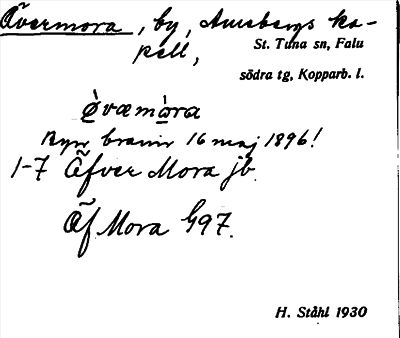 Övermora, by, Amsbergs ka-
pell,
St. Tuna sn, Falu
södra tg, Kopparb. l.
ø̀væmòra
Byn brann 16 maj 1896!
1-7 Öfver Mora jb.
Öf Mora G97.
H. Ståhl 1930